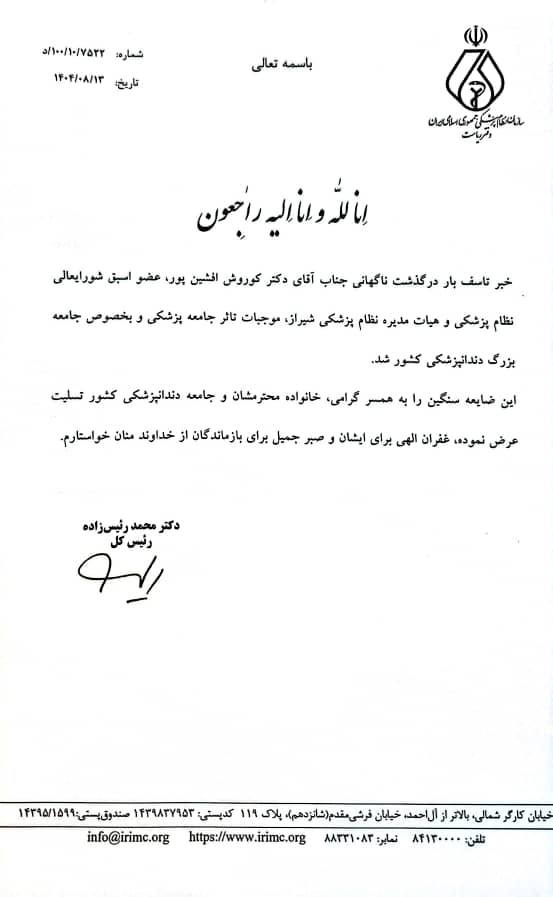 سازمان نظام پزشکی جمهوری اسلامی ایران
دفتر ریاست
باسمه تعالی
شماره: ۱۰۰/۱۰/۷۵۲۲/د
تاریخ: ۱۴۰۴/۰۸/۱۳
انا لله و انا الیه راجعون
خبر تاسف بار درگذشت ناگهانی جناب آقای دکتر کوروش افشین پور، عضو اسبق شورایعالی
نظام پزشکی و هیات مدیره نظام پزشکی شیراز، موجبات تاثر جامعه پزشکی و بخصوص جامعه
بزرگ دندانپزشکی کشور شد.
این ضایعه سنگین را به همسر گرامی، خانواده محترمشان و جامعه دندانپزشکی کشور تسلیت
عرض نموده، غفران الهی برای ایشان و صبر جمیل برای بازماندگان از خداوند منان خواستارم.
دکتر محمد رئیس‌زاده
رئیس کل
خیابان کارگر شمالی، بالاتر از آل‌احمد، خیابان فرشی‌مقدم(شانزدهم)، پلاک ۱۱۹ کدپستی: ۱۴۳۹۸۳۷۹۵۳ صندوق‌پستی:۱۴۳۹۵/۱۵۹۹
تلفن: ۸۴۱۳۰۰۰۰ نمابر: ۸۸۳۳۱۰۸۳ https://www.irimc.org info@irimc.org